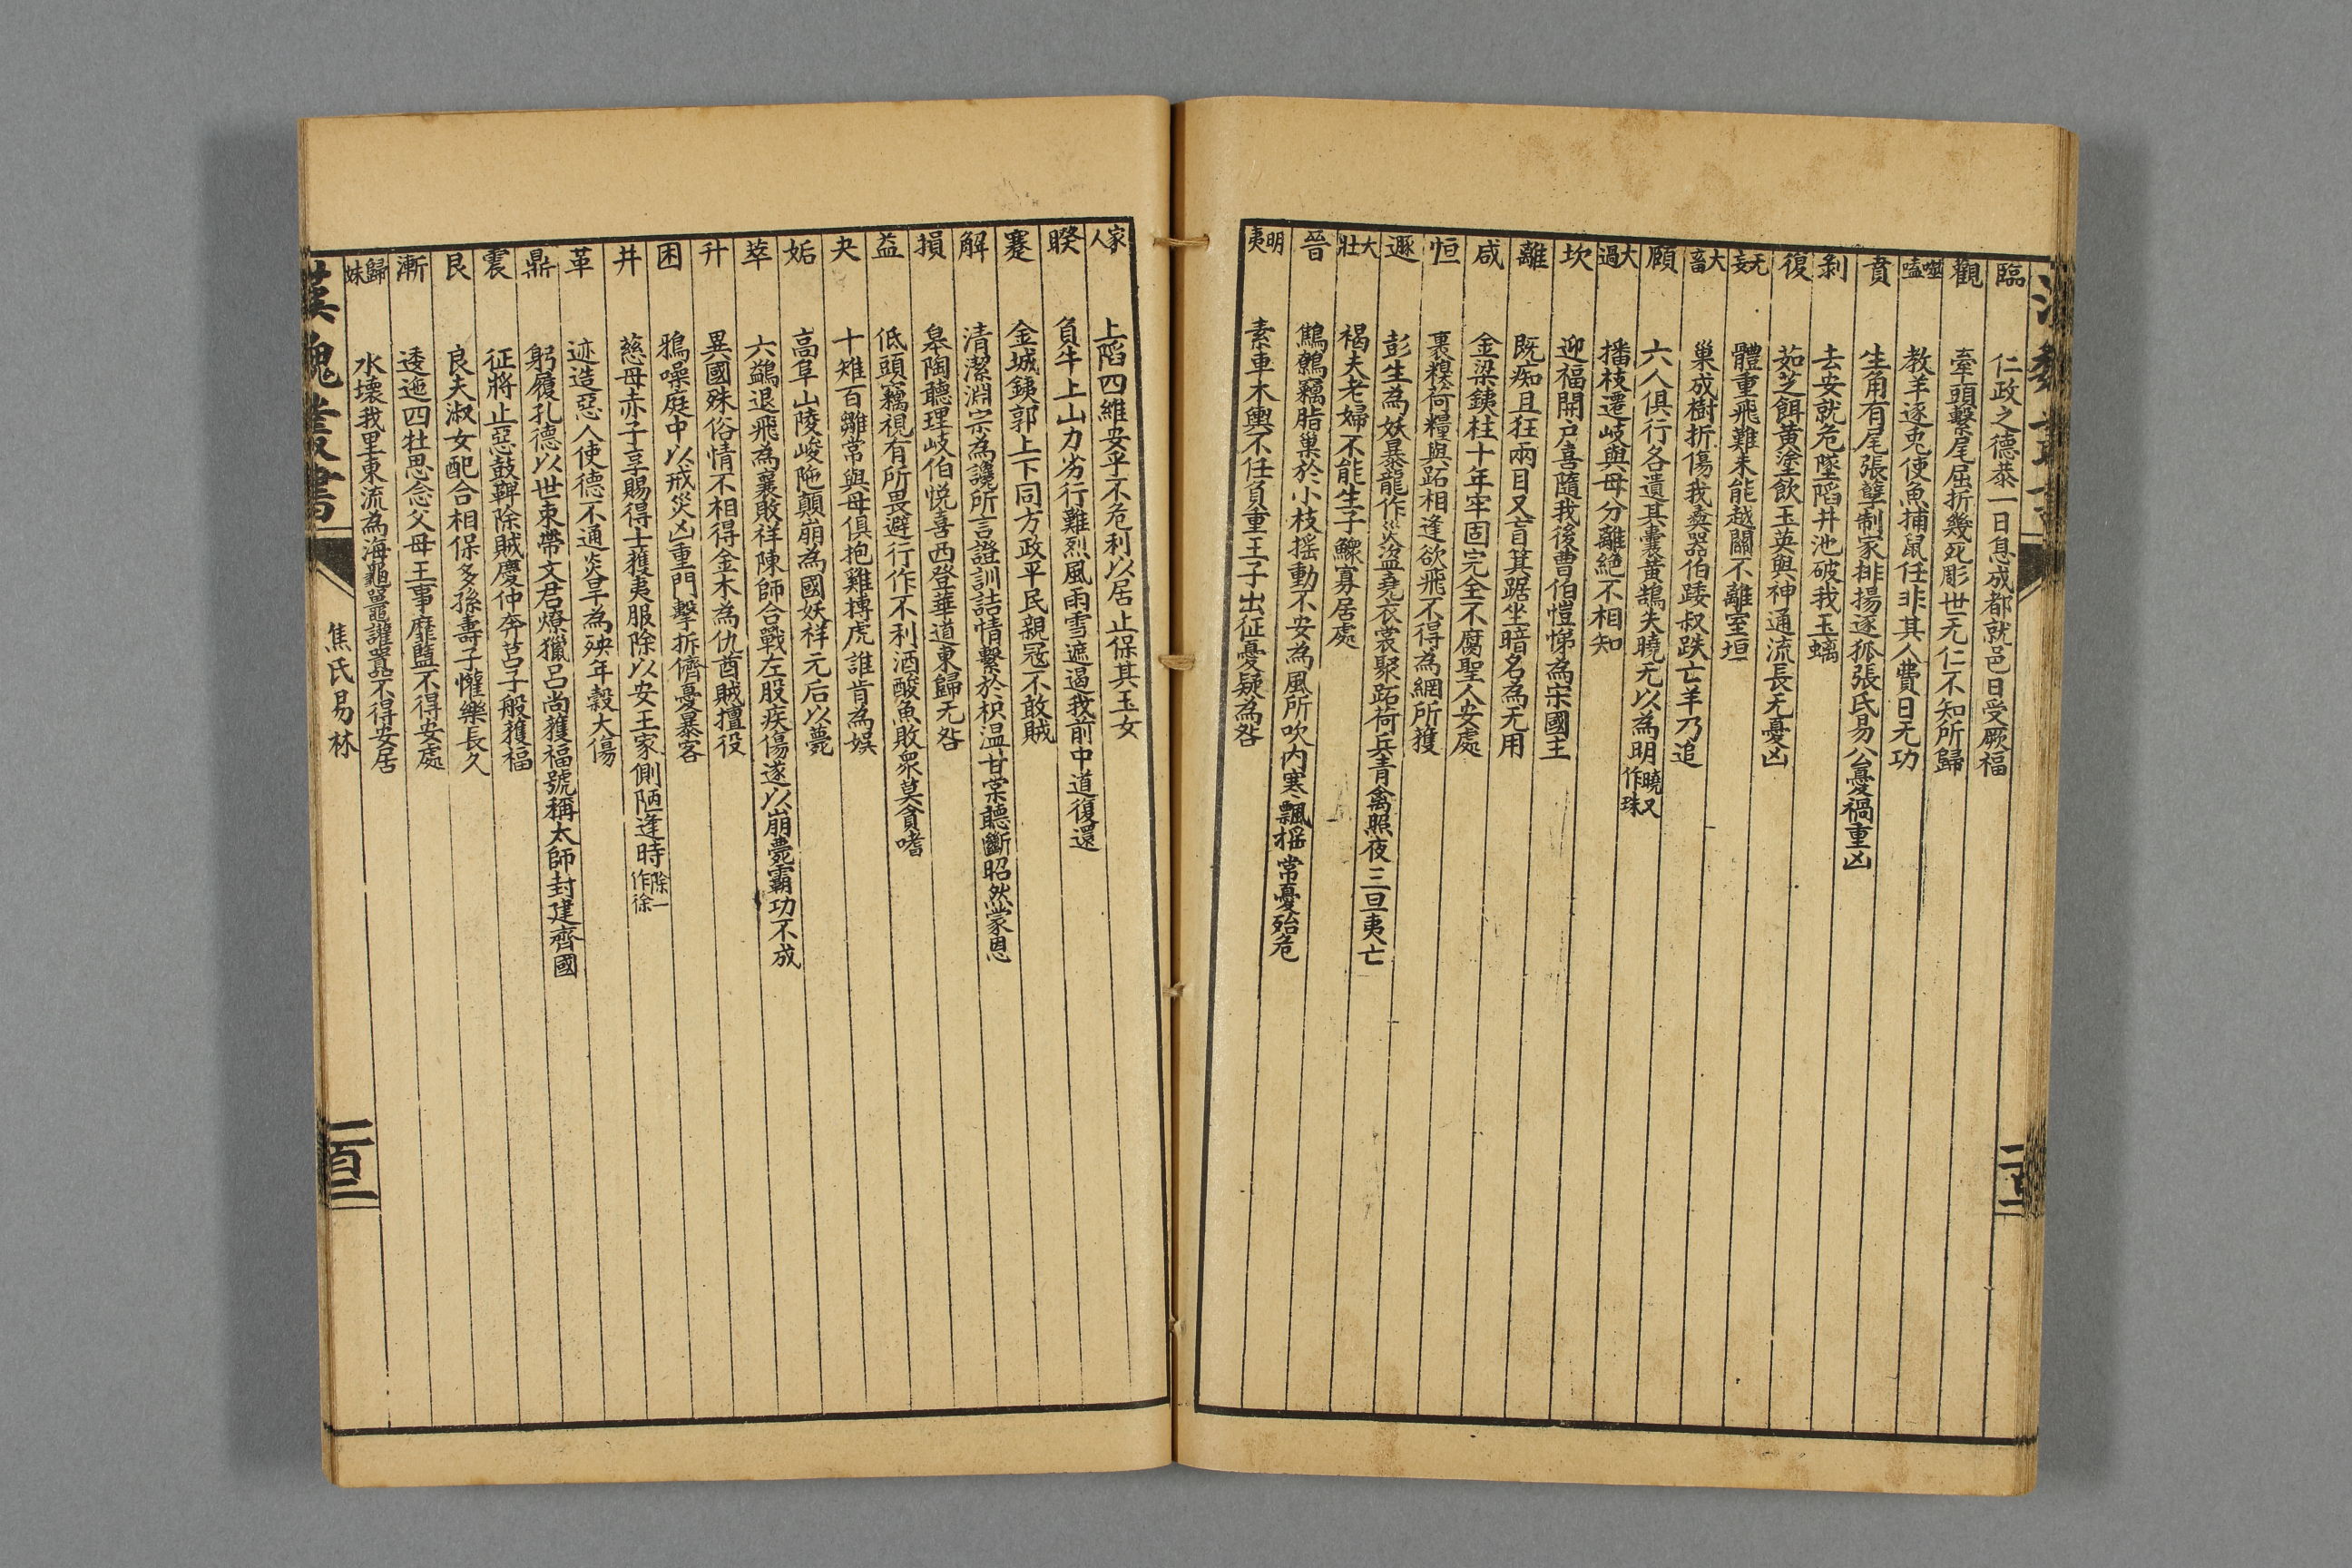 臨 仁政之德恭一日息成都就邑日受厥福
觀 牽頭繫尾屈折幾死彫世无仁不知所歸
噬嗑 教羊逐兎使魚捕鼠任非其人費日无功
賁 生角有尾張孽制家排揚逐狐張氏易公憂禍重凶
剝 去安就危墜陷井池破我玉螭
復 茹芝餌黃塗飲玉英與神通流長无憂凶
无妄 體重飛難未能越關不離室垣
大畜 巢成樹折傷我彝器伯踒叔跌亡羊乃追
頤 六人俱行各遺其囊黃鵠失曉无以為明曉又作珠
大過 播枝遷岐與母分離絕不相知
坎 迎福開户喜隨我後曹伯愷悌為宋國主
離 既痴且狂兩目又盲箕踞坐暗名為无用
咸 金梁銕柱十年牢固完全不腐聖人安處
恒 裹糗荷糧與跖相逢欲飛不得為網所獲
遯 彭生為妖暴龍作災盜堯衣裳聚跖荷兵青禽照夜三旦夷亡
大壯 褐夫老婦不能生子鰥寡居處
晉 鷦鷯竊脂巢於小枝摇動不安為風所吹内寒飄摇常憂殆危
明夷 素車木輿不任負重王子出征憂疑為咎
家人 上䧟四維安乎不危利以居止保其玉女
睽 負牛上山力劣行難烈風雨雪遮遏我前中道復還
蹇 金城銕郭上下同方政平民親冦不敢賊
解 清潔淵宗為讒所言證訊詰情繫於枳温甘棠聽斷昭然蒙恩
損 皋陶聽理岐伯悦喜西登華道東歸无咎
益 低頭竊視有所畏避行作不利酒酸魚敗衆莫貪嗜
夬 十雉百雛常與母俱抱雞搏虎誰肯為娱
姤 高阜山陵峻陁顛崩為國妖祥元后以薨
萃 六鷁退飛為襄敗祥陳師合戰左股疾傷遂以崩薨霸功不成
升 異國殊俗情不相得金木為仇酋賊擅役
困 鴉噪庭中以戒災凶重門擊拆儕憂暴客
井 慈母赤子享賜得士獲夷服除以安王家側陋逢時除一作徐
革 迹造惡人使德不通炎旱為殃年穀大傷
鼎 躬履孔德以世束帶文君燎獵吕尚獲福號稱太師封建齊國
震 征將止惡鼓鞞除賊慶仲奔莒子般獲福
艮 良夫淑女配合相保多孫壽子懽樂長久
漸 逶迤四牡思念父母王事靡盬不得安處
歸妹 水壞我里東流為海龜鼉讙嚻不得安居
漢魏叢書
焦氏易林
一百二